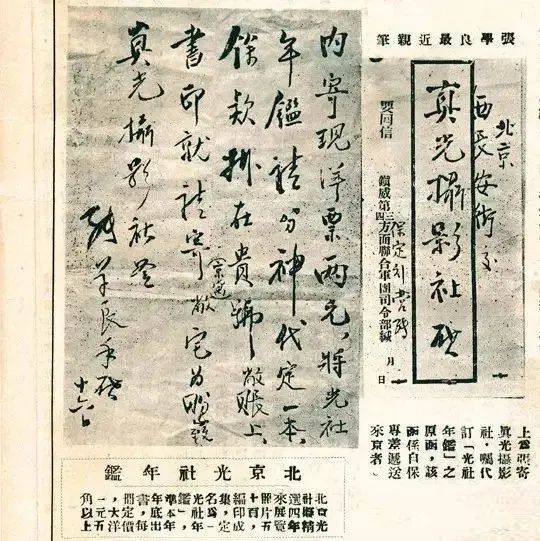 張學良最近親筆
北京
西長安街交
真光攝影社啓
保定行營張
鎮威第三四方面聯合軍團司令部緘
月 日
要回信
內寄現洋票兩元,將光社
年鑑請分神代定一本,
餘款掛在貴號敝賬上,
書印就請寄京敝宅為盼
真光攝影社
張學良手啓
十六
上爲張寄
真光攝影
社,囑代
訂「光社
年鑑」之
原函,該
函係自保
專差遞送
來京者
北京光社年鑑
北京光
社擬精
選四年
來展覽
照片五
編印成
集,定
名爲「
光社年
鑑」,
準本年
年底出
書,每
冊定價
大洋
一元五
角以上